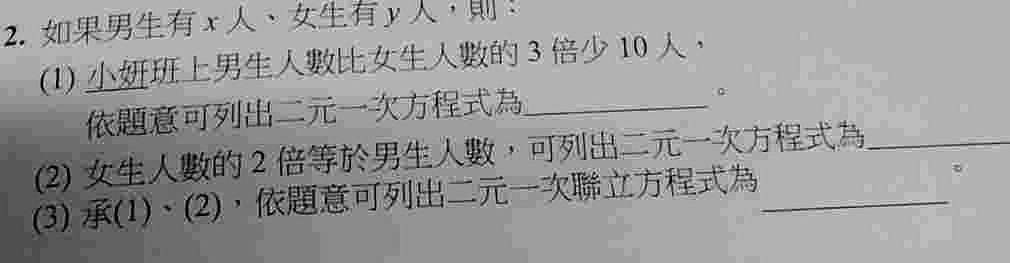 2. 如果男生有 x 人、女生有 y 人，則：
(1) 小妍班上男生人數比女生人數的 3 倍少 10 人，
依題意可列出二元一次方程式為__________。
(2) 女生人數的 2 倍等於男生人數，可列出二元一次方程式為__________。
(3) 承(1)、(2)，依題意可列出二元一次聯立方程式為__________